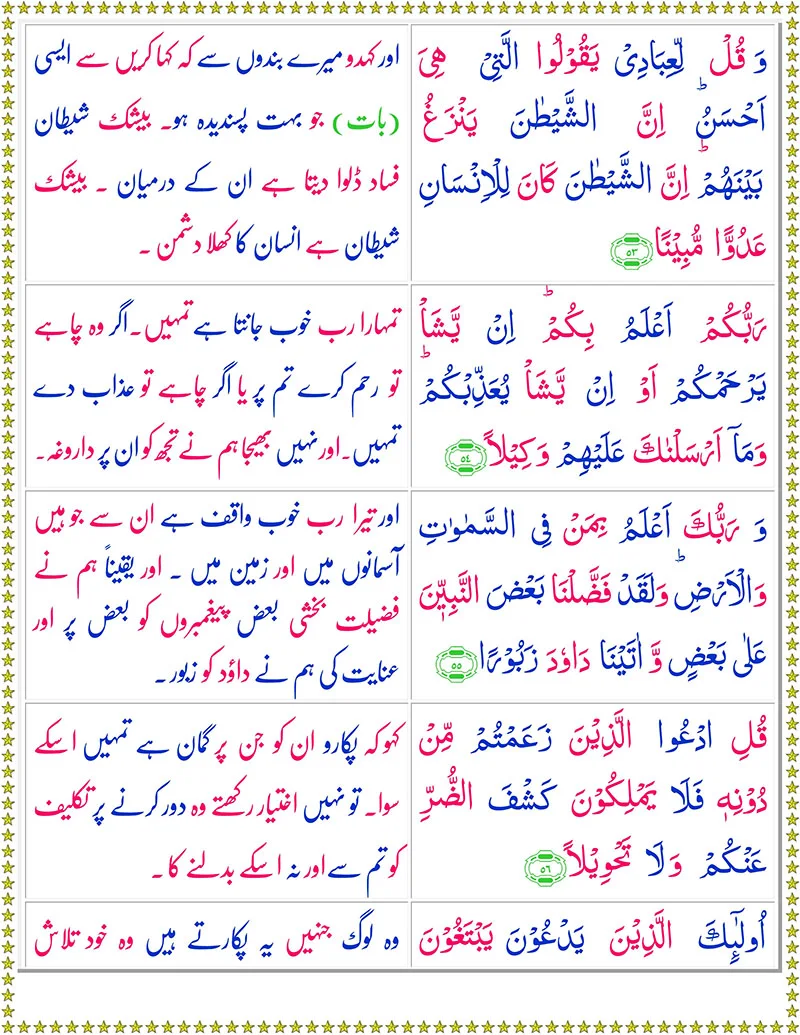 وَ قُلْ لِّعِبَادِیْ یَقُوْلُوا الَّتِیْ هِیَ
اَحْسَنُؕ اِنَّ الشَّیْطٰنَ یَنْزَغُ
بَیْنَهُمْؕ اِنَّ الشَّیْطٰنَ كَانَ لِلْاِنْسَانِ
عَدُوًّا مُّبِیْنًا ۵۳
اور کہدو میرے بندوں سے کہ کہا کریں سے ایسی
(بات) جو بہت پسندیدہ ہو۔ بیشک شیطان
فساد ڈلوا دیتا ہے ان کے درمیان ۔ بیشک
شیطان ہے انسان کا کھلا دشمن ۔
رَبُّكُمْ اَعْلَمُ بِكُمْؕ اِنْ یَّشَاْ
یَرْحَمْكُمْ اَوْ اِنْ یَّشَاْ یُعَذِّبْكُمْؕ
وَمَاۤ اَرْسَلْنٰكَ عَلَیْهِمْ وَكِیْلًا ۵۴
تمہارا رب خوب جانتا ہے تمہیں۔اگر وہ چاہے
تو رحم کرے تم پر یا اگر چاہے تو عذاب دے
تمہیں۔اور نہیں بھیجا ہم نے تجھ کو ان پر داروغہ۔
وَ رَبُّكَ اَعْلَمُ بِمَنْ فِی السَّمٰوٰتِ
وَالْاَرْضِؕ وَلَقَدْ فَضَّلْنَا بَعْضَ النَّبِیّٖنَ
عَلٰی بَعْضٍ وَّ اٰتَیْنَا دَاوٗدَ زَبُوْرًا ۵۵
اور تیرا رب خوب واقف ہے ان سے جو ہیں
آسمانوں میں اور زمین میں ۔ اور یقیناً ہم نے
فضیلت بخشی بعض پیغمبروں کو بعض پر اور
عنایت کی ہم نے داؤد کو زبور ۔
قُلِ ادْعُوا الَّذِیْنَ زَعَمْتُمْ مِّنْ
دُوْنِهٖ فَلَا یَمْلِكُوْنَ كَشْفَ الضُّرِّ
عَنْكُمْ وَلَا تَحْوِیْلًا ۵۶
کہو کہ پکارو ان کو جن پر گمان ہے تمہیں اسکے
سوا۔ تو نہیں اختیار رکھتے وہ دور کرنے پر تکلیف
کو تم سے اور نہ اسکے بدلنے کا ۔
اُولٰٓىِٕكَ الَّذِیْنَ یَدْعُوْنَ یَبْتَغُوْنَ
وہ لوگ جنہیں یہ پکارتے ہیں وہ خود تلاش